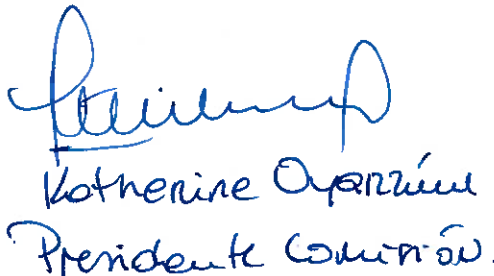 Katherine Oyarzún
Presidente Comisión.